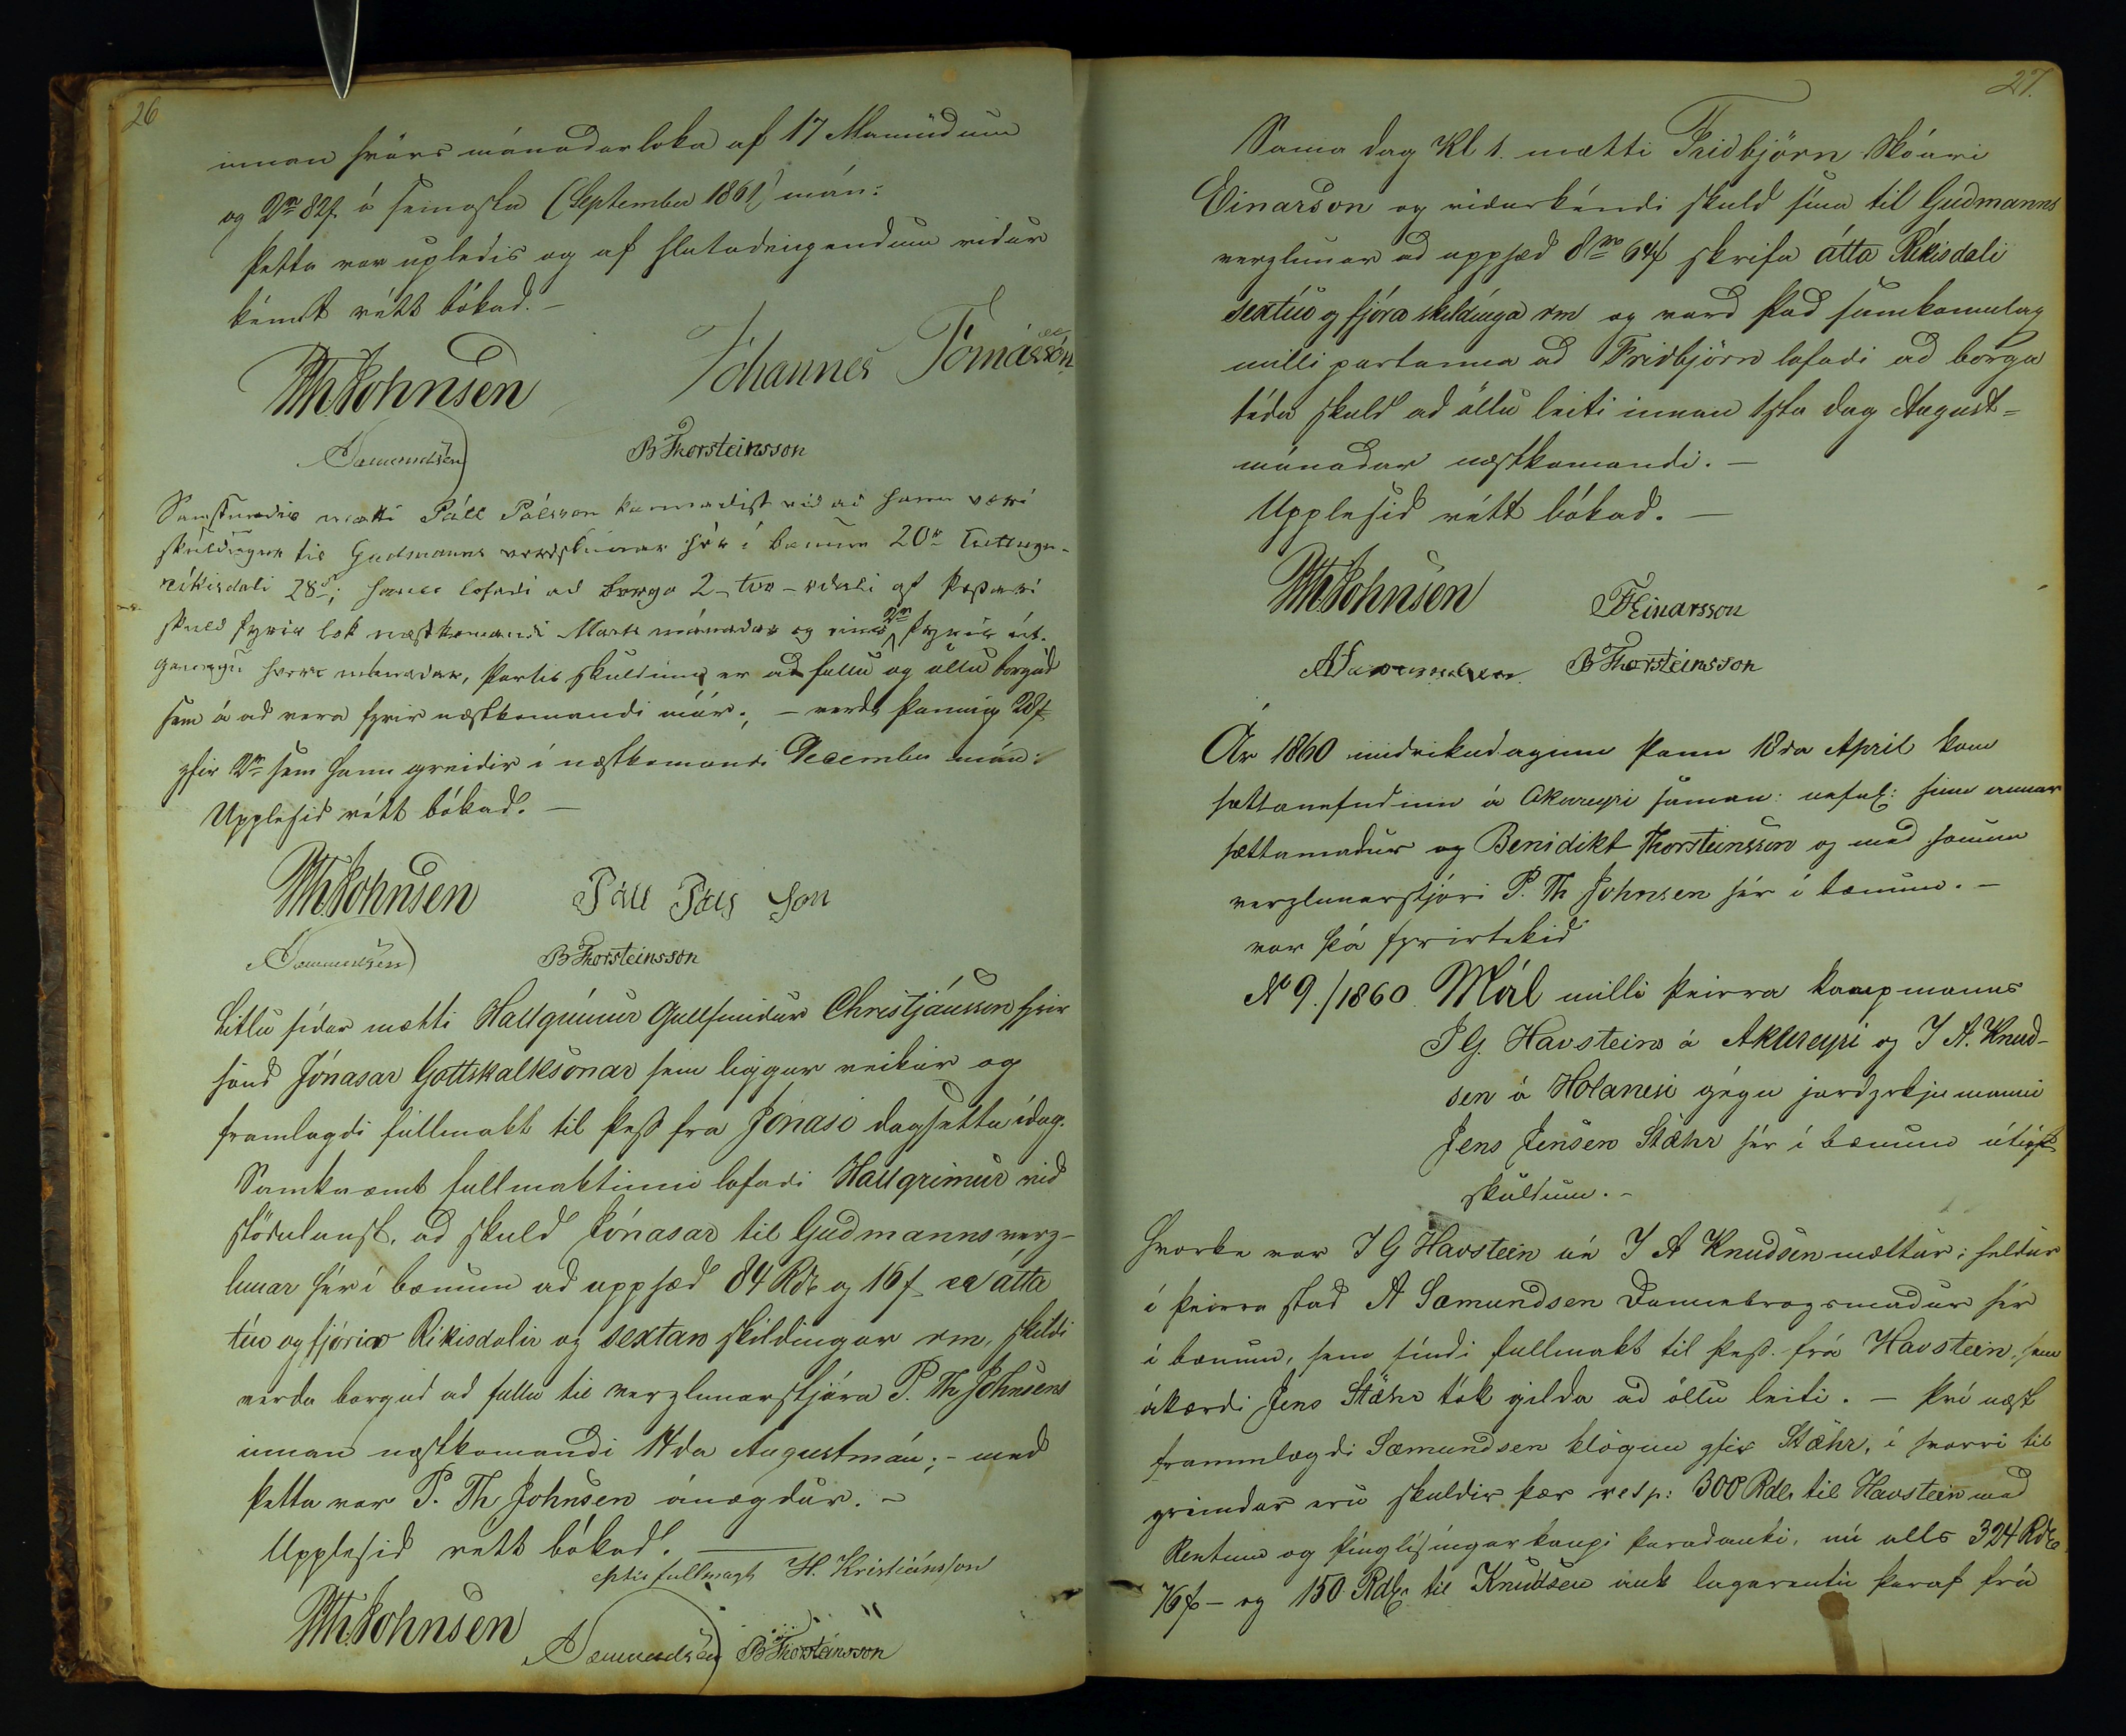 26
innan hvörs mánadarloka af 17 Manúdum
og 2rd 82f. á seinasta (September 1861) mán:
Þetta var uplesid og af hlutadeigendum vidur
kénnt rétt bókad. —
PThJohnsen Jóhannes Tómásson
ASæmundsen BThorsteinsson
Samstundis mætti Páll Pálsson kannadist vid ad hann væri
skuldugur til Gudmanns verdslunar hér i bænum 20rd Tuttugu-
ríkisdali 28s; hann lofadi ad borga 2 - tvo - rdali af þessari
skuld fyrir lok næstkomandi Marts mánadar og eins 2rd fyrir út-
gaungu hvers mánadar, þartil skuldinn er ad fullu og öllu borgud
sem á ad vera fyrir næstkomandi nýár; — verda þannig 28f
yfir 2rd sem hann greidir í næstkomandi December mán:
Upplesid rétt bókad. —
PThJohnsen Páll Páls son
ASæmundsen BThorsteinsson
Litlu sídar mætti Hallgrímur Gullsmidur Christjánsson fyrir
hönd Jónasar Gottskalksonar sem liggur veikur og
framlagdi fullmakt til þess fra Jónasi dagsetta ídag.
Samkvæmt fullmaktinni lofadi Hallgrimur vid
stödulaust, ad skuld Jónasar til Gudmanns verz-
lunar hér í bænum ad upphæd 84 Rdr og 16f er átta
tíu og fjórir Rikisdalir og sextan skildingar rm, skildi
verda borgud ad fullu til verzlunarstjóra P. Th Johnsens
innan næstkomandi 14da Augustmán; - med
þetta var P. Th Johnsen ánægdur. —
Upplesid rétt bókad. —
eptir fullmagt H. Kristiánsson
PThJohnsen ASæmundsen BThorsteinsson
27.
Sama dag Kl 1. mætti Fridbjörn Skóari
Einarson og vidurkéndi skuld sína til Gudmanns
verzlunar ad upphæd 8rd 64f skrifa átta Ríkisdali
sextíu og fjóra skildínga rm og vard þad samkomulag
milli partanna ad Fridbjörn lofadi ad borga
téda skuld ad öllu leiti innan 1sta dag August-
mánadar næstkomandi. —
Upplesid rétt bókad. —
PThJohnsen FEinarsson
ASæmundsen BThorsteinsson
Ár 1860 midvikudaginn þann 18da April kom
sættanefndinn á Akureyri saman: nefnl: hinn annar
sættamadur og Benidikt Thorsteinsson og med honum
verzlunarstjóri P. Th Johnsen hér í bænum. —
var þá fyrirtekid
No 9./1860. Mál milli þeirra kaupmanns
J G. Havsteins á Akureyri og J A. Knud-
sen á Hólanesi gégn jardyrkjumanni
Jens Jensen Stæhr hér í bænum útúraf
skuldum. -
Hvorke var J G Havstein né J A Knudsen mættur; heldur
í þeirra stad A Sæmundsen Dannebrogsmadur hér
í bænum, sem síndi fullmakt til þess. frá Havstein, sem
ákærdi Jens Stæhr tók gilda ad öllu leiti. — Því næst
frammlagdi Sæmundsen klögun yfir Stæhr, í hvorri til
greindar eru skuldir þær resp: 300 Rdlr til Havstein med
Rentum og þínglísingarkaupi þaradauki, nú alls 324 Rdlr
76f — og 150 Rdlr til Knudsen auk lagarentu þaraf frá